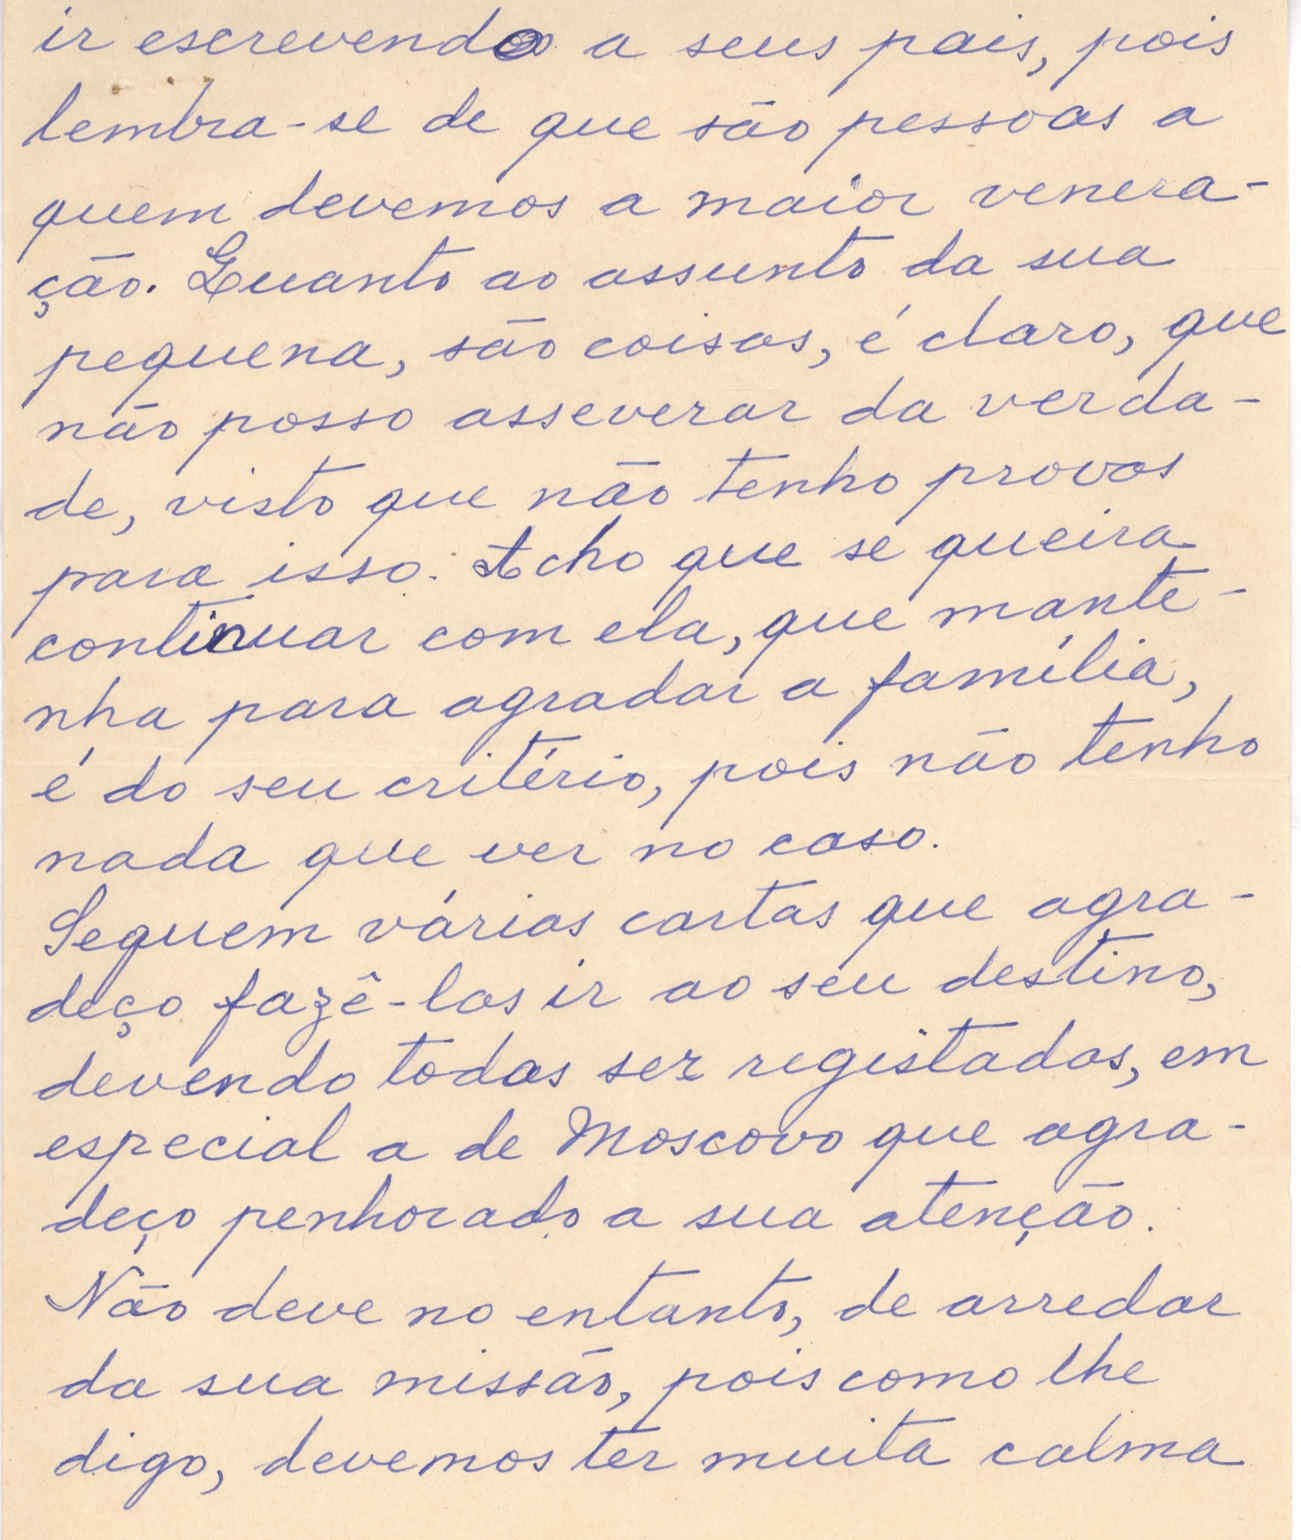 ir escrevendo a seus pais, pois
lembra-se de que são pessoas a
quem devemos a maior venera-
ção. Quanto ao assunto da sua
pequena, são coisas, é claro, que
não posso asseverar da verda-
de, visto que não tenho provas
para isso. Acho que se queira
continuar com ela, que mante-
nha para agradar a família,
é do seu critério, pois não tenho
nada que ver no caso.
Seguem várias cartas que agra-
deço fazê-las ir ao seu destino,
devendo todas ser registadas, em
especial a de Moscovo que agra-
deço penhorado a sua atenção.
Não deve no entanto, de arredar
da sua missão, pois como lhe
digo, devemos ter muita calma